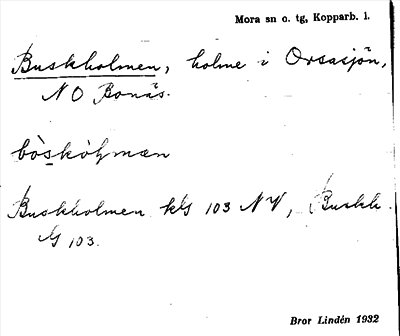 Mora sn o. tg, Kopparb. l.
Buskholmen, holme i Orsasjön,
NO Bonäs.
bòskòɫmæn
Buskholmen kG 103 NV, Buskh.
lG 103.
Bror Lindén 1932